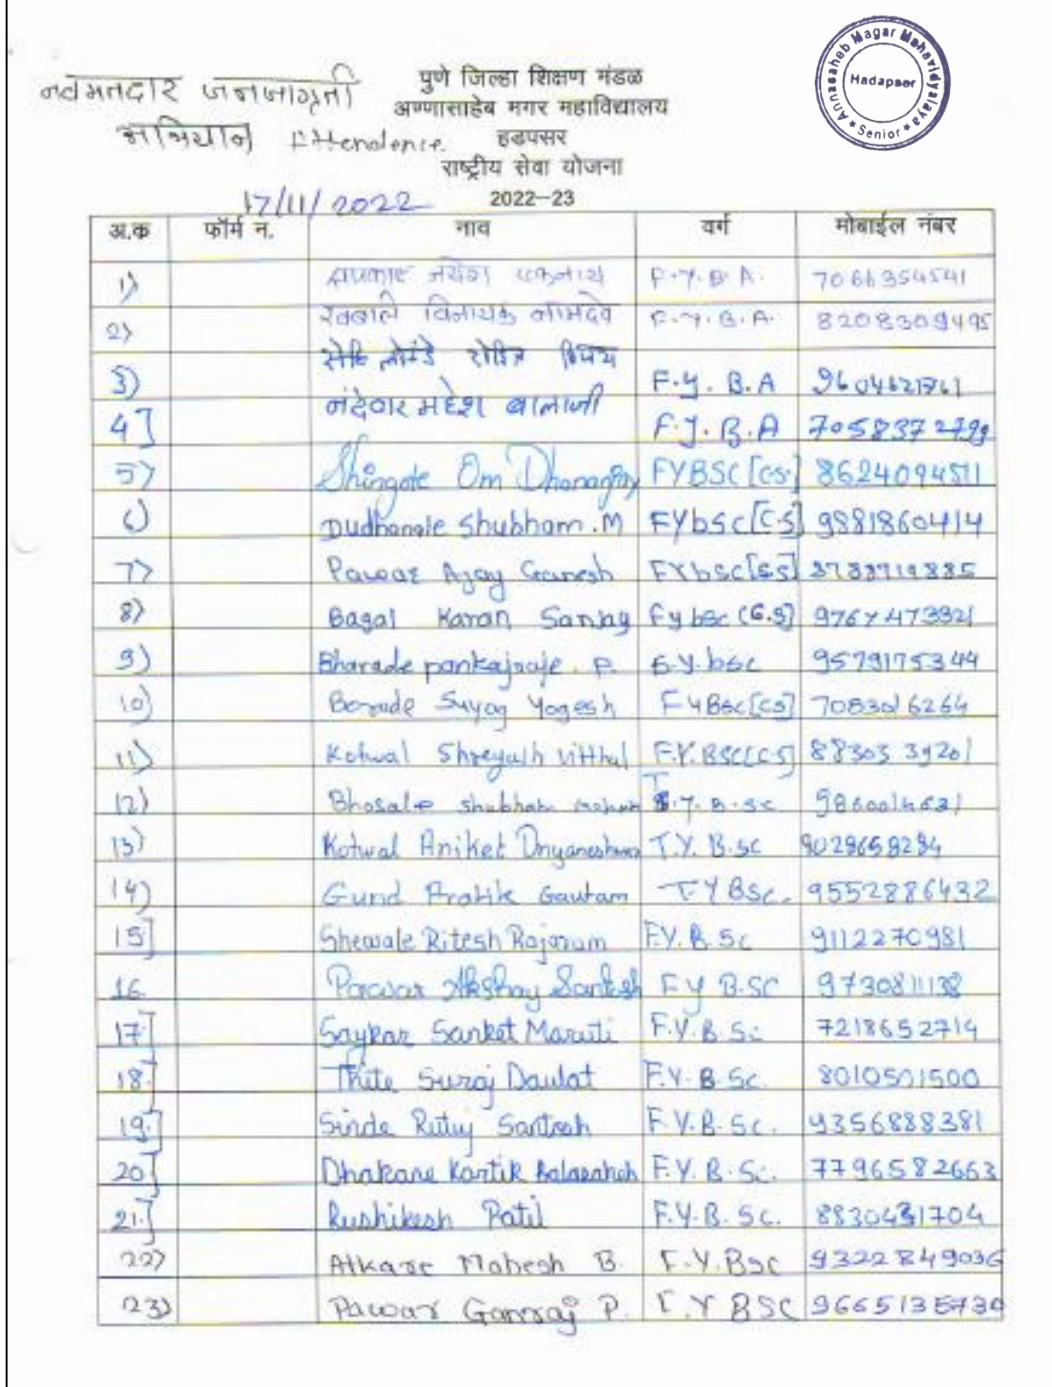 नवमतदार जनजागृती
अभियान Attendence
17/11/2022
पुणे जिल्हा शिक्षण मंडळ
अण्णासाहेब मगर महाविद्यालय
हडपसर
राष्ट्रीय सेवा योजना
2022-23
Annasaheb Magar Mahavidyalaya
Hadapsar
Senior
अ.क फॉर्म न. नाव वर्ग मोबाईल नंबर
1) एकनाथ F.Y.B.A. 7066354541
2) विनायक नामदेव F.Y.B.A. 8208309495
3) लोमटे रोहित F.Y.B.A 9604621761
4] महेश बालाजी F.Y.B.A 7058372799
5) Shingote Om Dhananjay FYBSC[CS] 8624094511
6) Dudhangle Shubham.M FYbsc[C.S] 9881860414
7) Pawar Ajay Ganesh FYbsc[CS]
8) Bagal Karan Sanjay Fybsc (C.S) 9767473321
9) Bharade pankajraje. P. F.Y.bsc 9579175344
10) Borude Suyog Yogesh FYBsc[CS] 7083016264
11) Kotwal Shreyash Vitthal F.Y.BSC[CS] 88303 39201
12) Bhosale shubham mohan T.Y.B.sc
13) Kotwal Aniket Dnyaneshwar T.Y. B.sc 9029659294
14) Gund Pratik Gautam T.Y BSc. 9552886432
15] Shewale Ritesh Rajaram F.Y. B.Sc 9112270981
16 Pawar Akshay Santosh F.Y B.SC 9730811138
17.] Saykar Sanket Maruti F.Y.B.Sc 7218652714
18.] Thite Suraj Daulat F.Y. B.Sc. 8010501500
19.] Sinde Rutuj Santosh F.Y.B.Sc. 9356888381
20] Dhakane Kartik Balasaheb F.Y.B.Sc. 7796582663
21.] Rushikesh Patil F.Y.B.Sc. 8830431704
22) Alkare Mahesh B. F.Y.Bsc 9322849036
23) Pawar Ganraj P. F.Y BSC 9665135730